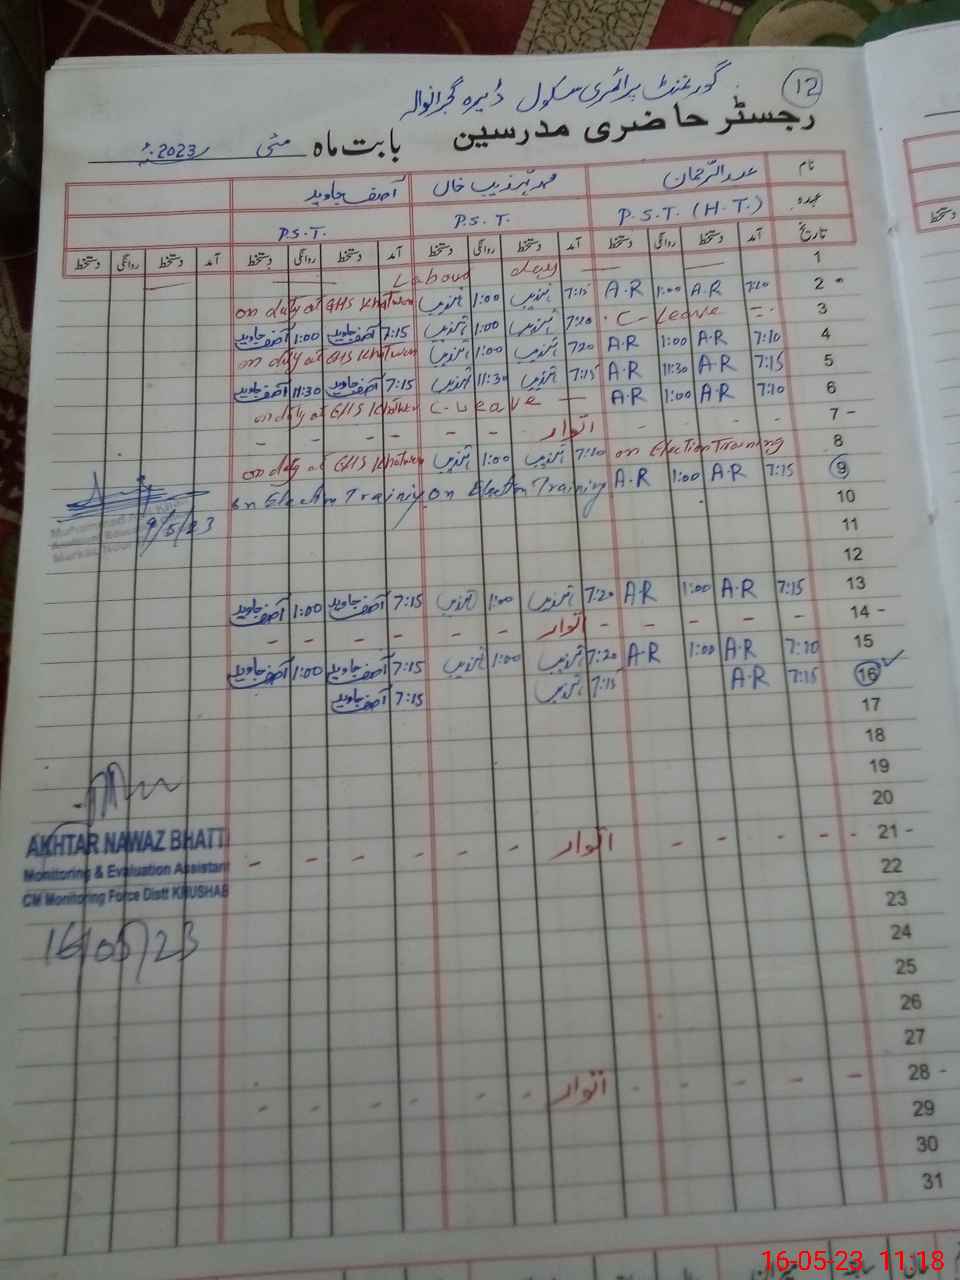 12
گورنمنٹ پرائمری سکول ڈیرہ گجرانوالہ
رجسٹر حاضری مدرسین بابت ماہ مئی 2023ء
نام عبدالرحمان محمد تہذیب خان آصف جاوید
عہدہ P.S.T. (H.T.) P.S.T. P.S.T.
تاریخ آمد دستخط روانگی دستخط آمد دستخط روانگی دستخط آمد دستخط روانگی دستخط آمد دستخط روانگی دستخط
1 Labour day
2 7:10 A-R 1:00 A-R 7:15 تہذیب 1:00 تہذیب on duty at GHS
3 C-Leave 7:20 تہذیب 1:00 تہذیب 7:15 آصف جاوید 1:00 آصف جاوید
4 7:10 A-R 1:00 A-R 7:20 تہذیب 1:00 تہذیب on duty at GHS
5 7:15 A-R 11:30 A-R 7:15 تہذیب 11:30 تہذیب 7:15 آصف جاوید 11:30 آصف جاوید
6 7:10 A-R 1:00 A-R C-Leave on duty at GHS
7 - اتوار
8 on Election Training 7:10 تہذیب 1:00 تہذیب on duty at GHS
9 7:15 A-R 1:00 A-R on Election Training on Election Training
9/5/23
10
11
12
13 7:15 A-R 1:00 A-R 7:20 تہذیب 1:00 تہذیب 7:15 آصف جاوید 1:00 آصف جاوید
14 - اتوار
15 7:20 A-R 1:00 A-R 7:20 تہذیب 1:00 تہذیب 7:15 آصف جاوید 1:00 آصف جاوید
16 7:15 A-R 7:15 تہذیب 7:15 آصف جاوید
17
18
19
20
21 - اتوار
AKHTAR NAWAZ BHATTI
Monitoring & Evaluation Assistant
CM Monitoring Force Distt KHUSHAB
16/05/23
22
23
24
25
26
27
28 - اتوار
29
30
31
16-05-23 11:18